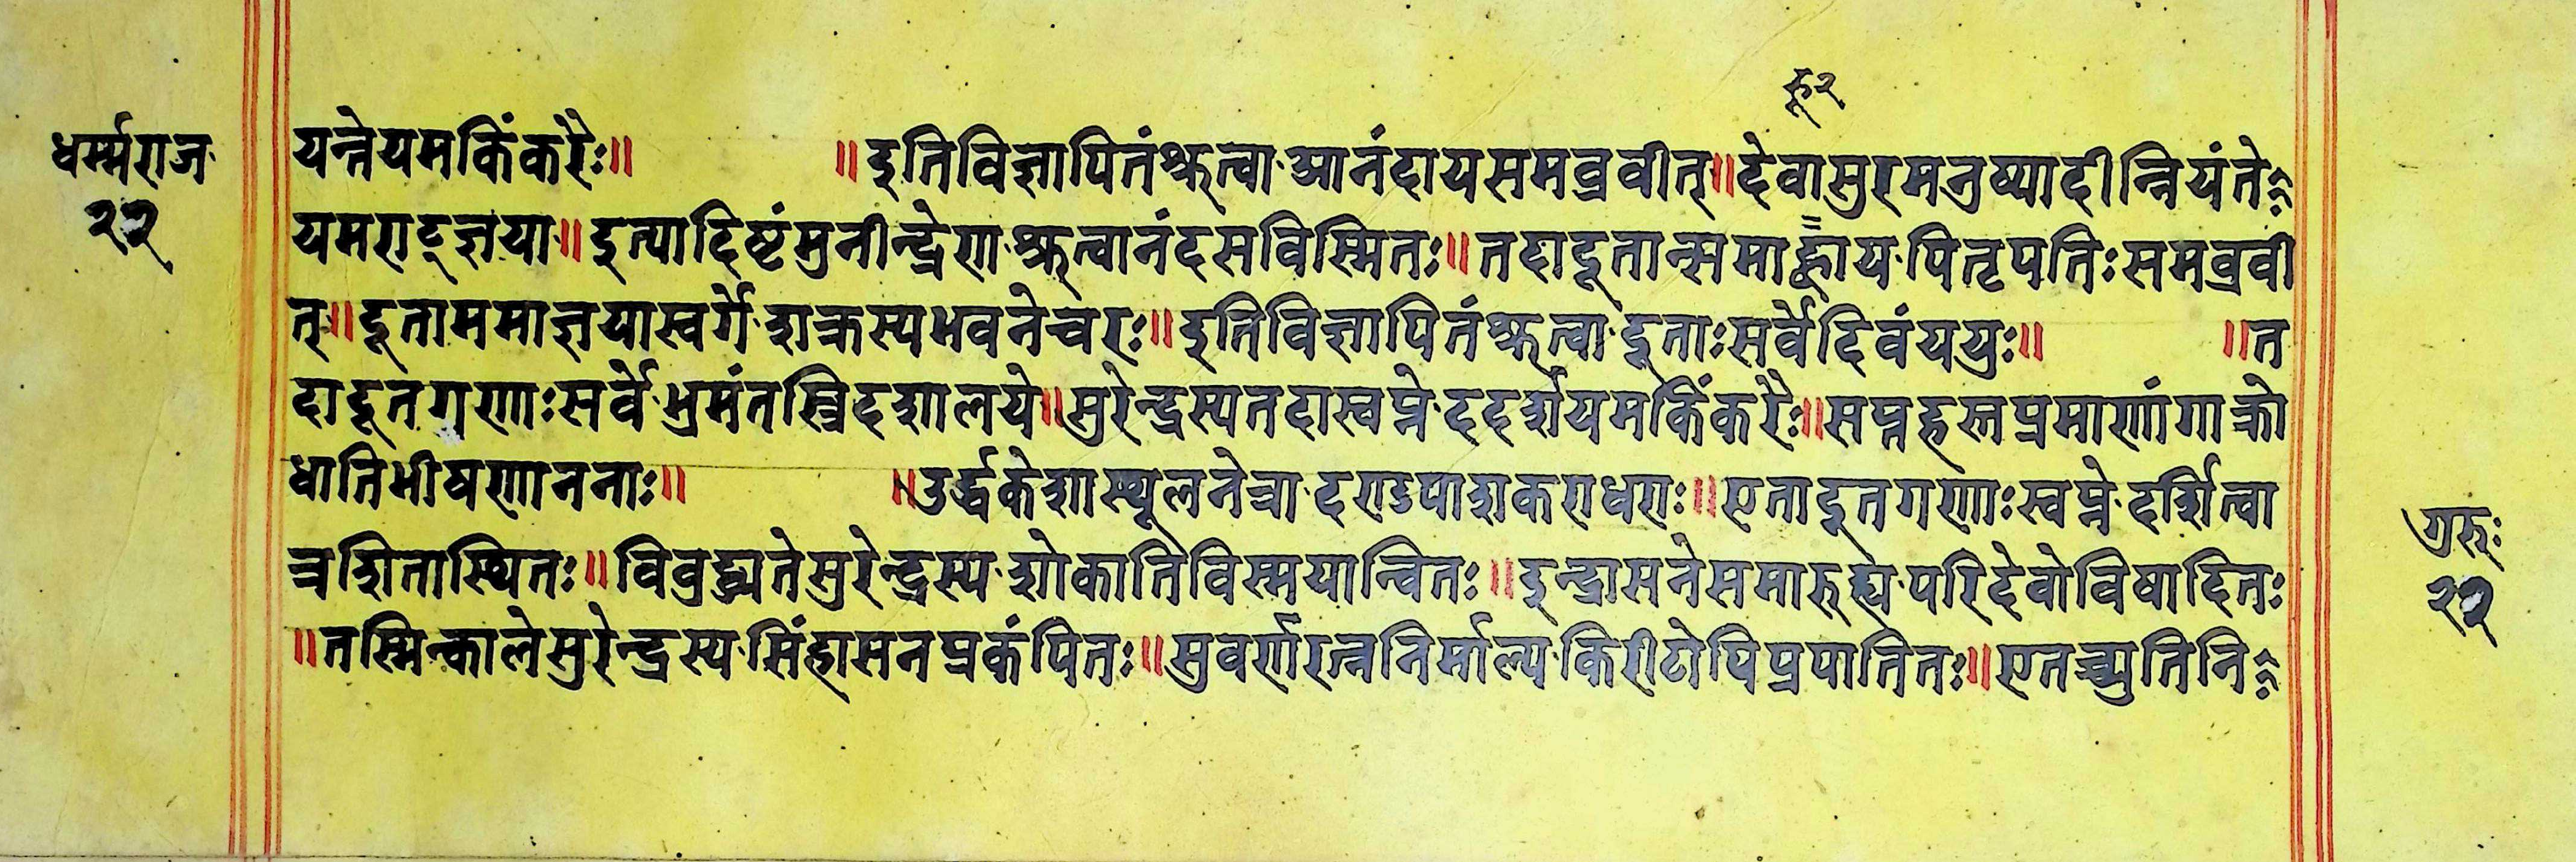 हू२
धर्म्मराज
२२
यन्नेयमकिंकरैः॥ ॥इतिविज्ञापितंश्रुत्वा·आनंदायसमव्रवीत्॥देवासुरमनुष्यादीन्नियंते
यमराट्ज्ञया॥इत्यादिष्टंमुनीन्द्रेण·श्रुत्वानंदसविस्मितः॥तदादूतान्समाह्वाय·पितृपतिःसमव्रवी
त्॥दूताममाज्ञयास्वर्गे·शक्रस्यभवनेचरः॥इतिविज्ञापितंश्रुत्वा·दूताःसर्वेदिवंययुः॥ ॥त
दादूतगणाःसर्वे·भ्रमंतस्त्रिदशालये॥सुरेन्द्रस्यतदास्वप्ने·ददर्शयमकिंकरैः॥सप्तहस्तप्रमाणांगाक्रो
धातिभीषणाननाः॥ ॥उर्द्धकेशास्थूलनेत्रा·दण्डपाशकराधराः॥एतादूतगणाःस्वप्ने·दर्शित्वा
त्रशितास्थितः॥विवुद्ध्यतेसुरेन्द्रस्य·शोकातिविस्मयान्वितः॥इन्द्रासनेसमारुह्य·परिदेवोविषादितः
॥तस्मिन्कालेसुरेन्द्रस्य·सिंहासनप्रकंपितः॥सुवर्णरत्ननिर्माल्य·किरीटोपिप्रपातितः॥एतच्च्युतिनि
गुरुः
२२